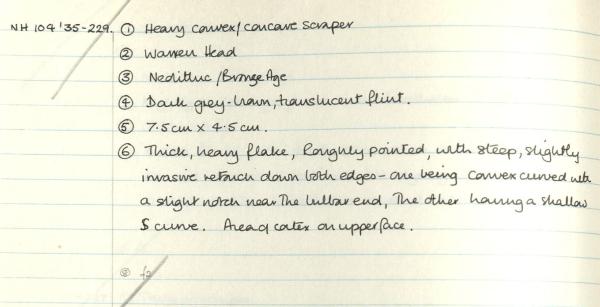 NH 104 '35-229. ① Heavy convex/concave scraper
② Warren Head
③ Neolithic / Bronze Age
④ Dark grey-brown, translucent flint.
⑤ 7.5cm x 4.5cm.
⑥ Thick, heavy flake, Roughly pointed, with steep, slightly
invasive retouch down both edges - one being convex curved with
a slight notch near the bulbar end, The other having a shallow
S curve. Area of cortex on upper face.